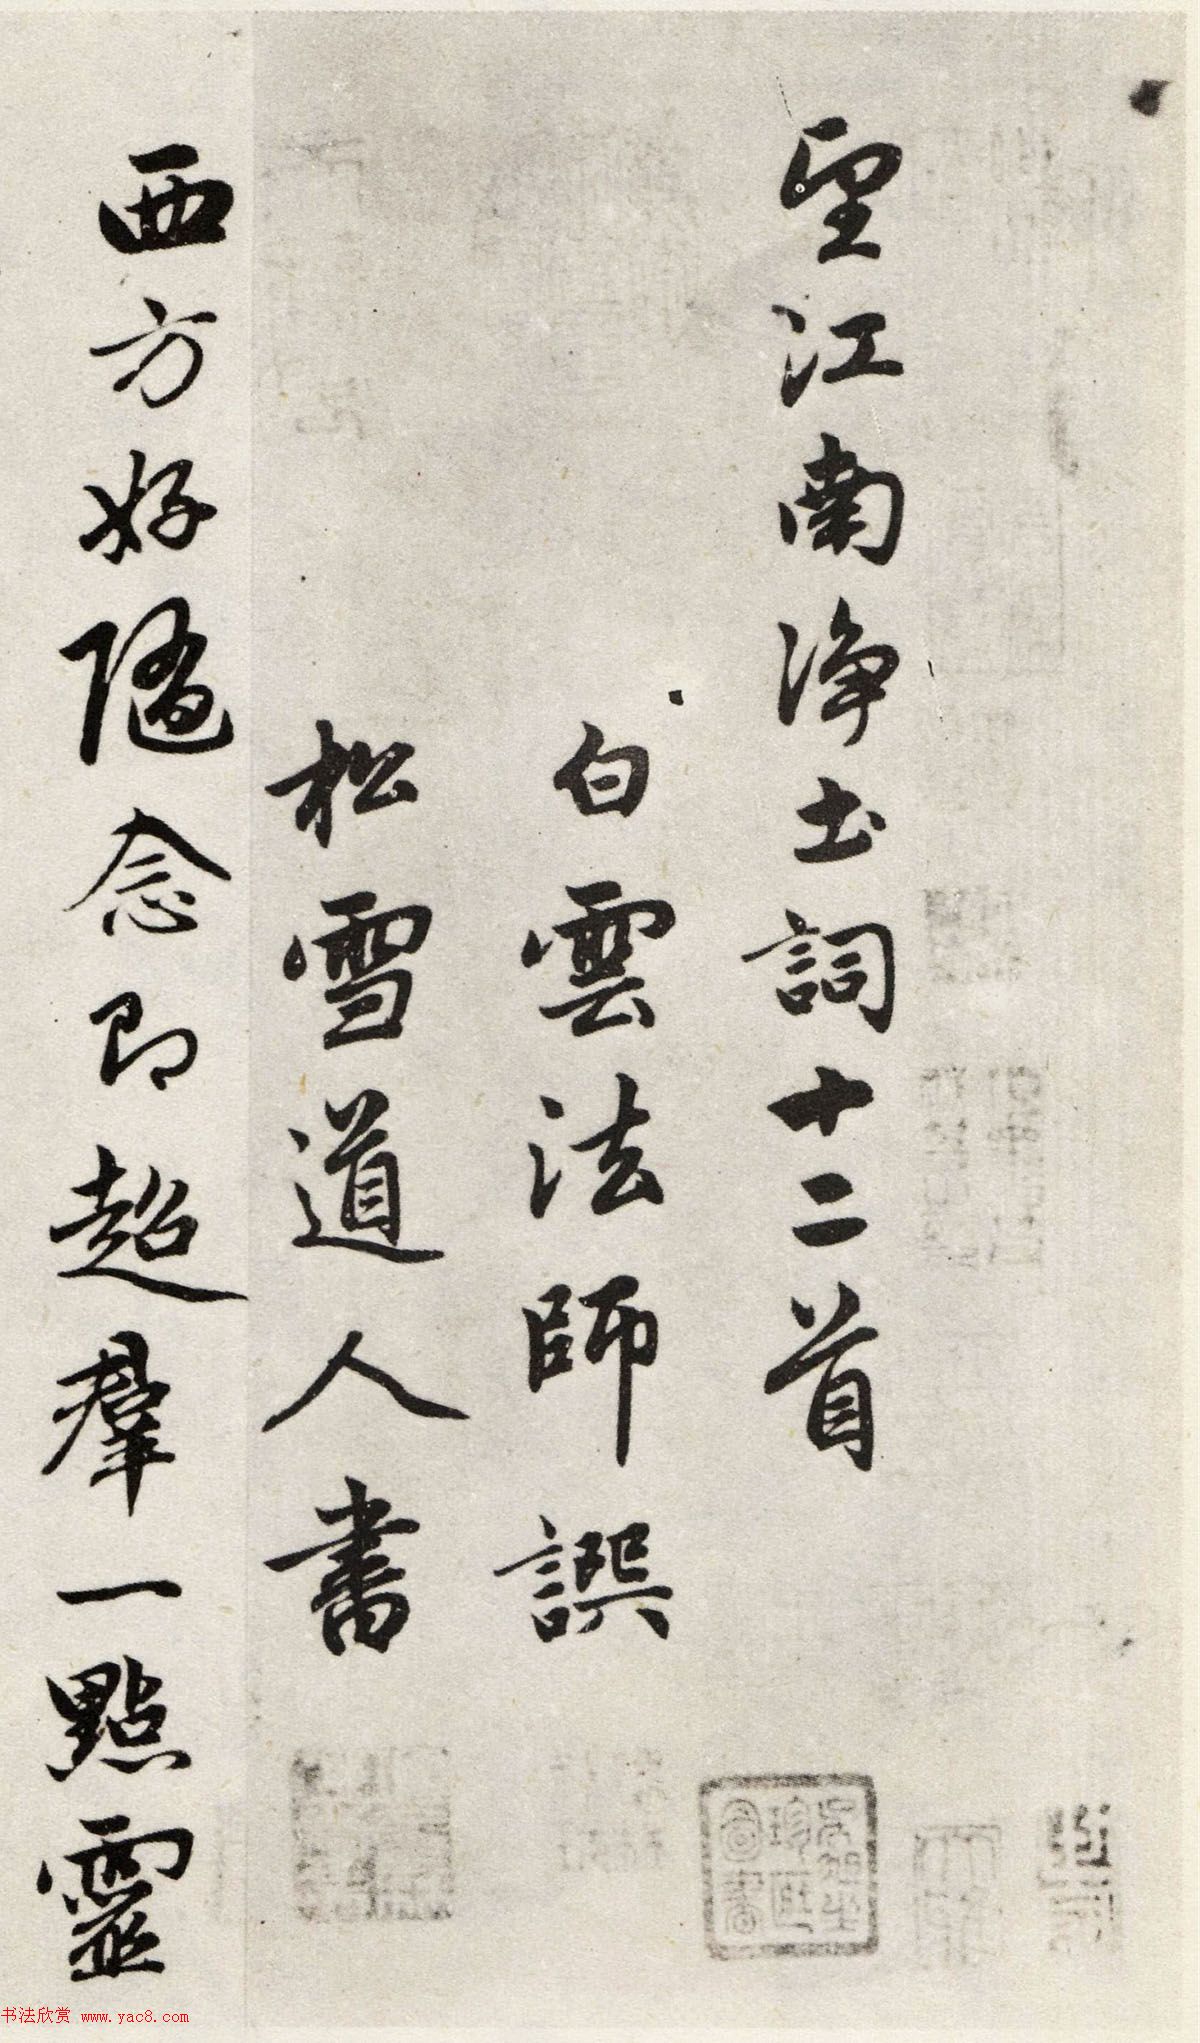 望江南淨土詞十二首
白雲法師譔
松雪道人書
西方好隨念即超羣一點靈
书法欣赏 www.yac8.com